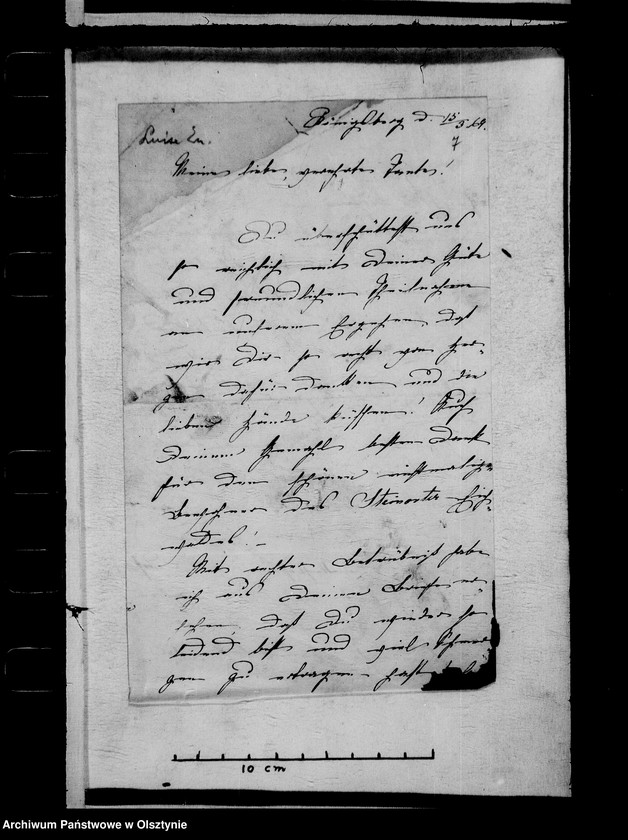 Luise En.
Königsberg d. 15/5 64.
7
Meine liebe, verehrte Tante!
Du überschüttest uns
so reichlich mit Deiner Güte
und freundlichen Theilnahme
an unserem Ergehen, daß
wir Dir so recht von Her-
zen dafür danken und die
lieben Hände küssen! Auch
Deinem Gemahl besten Dank
für den schönen
Bewohner des Steinorter Eich-
waldes! –
Mit rechter Betrübniß habe
ich aus Deinem Briefe er-
sehen, daß Du wieder so
leidend bist und viel Schmer-
zen zu ertragen hast
10 cm
Archiwum Państwowe w Olsztynie